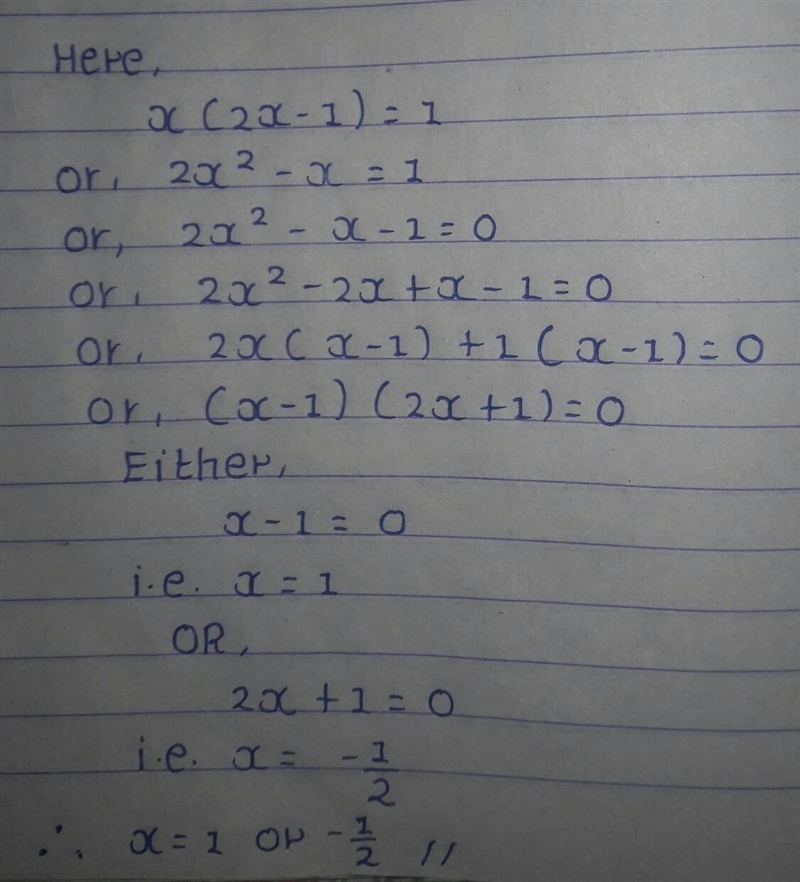 Here,
x(2x-1)=1
or, 2x² - x = 1
or, 2x² - x - 1 = 0
or, 2x² - 2x + x - 1 = 0
or, 2x(x-1) + 1(x-1) = 0
or, (x-1)(2x+1)=0
Either,
x-1 = 0
i.e. x = 1
OR,
2x + 1 = 0
i.e. x = -1/2
∴ x = 1 or -1/2 //